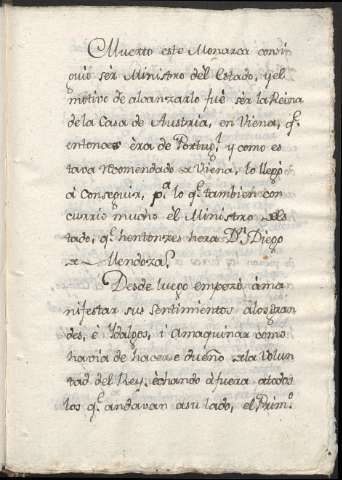 Muerto este Monarca consi
guió sér Ministro dél Estado, y el
motivo de alcanzarlo fué sér la Reina
de la Casa de Austria, en Viena, q.e
entonces éra de Portug.l y como es
tava recomendado a Viena, lo llegó
á Conseguir, p.a lo q.e tambien con
currio mucho él Ministro de Es
tado, q.e hentonzes hera D.n Diego
de Mendoza.
Desde luego empezó áma
nifestar sus Sentimientos alos Gran
des, é Ydalgos, i ámaquinar como
havia de hacerse dueño de la Volun
tad del Rey, échando áfuera atodos
los q.e andavan asu lado, el Prim.o